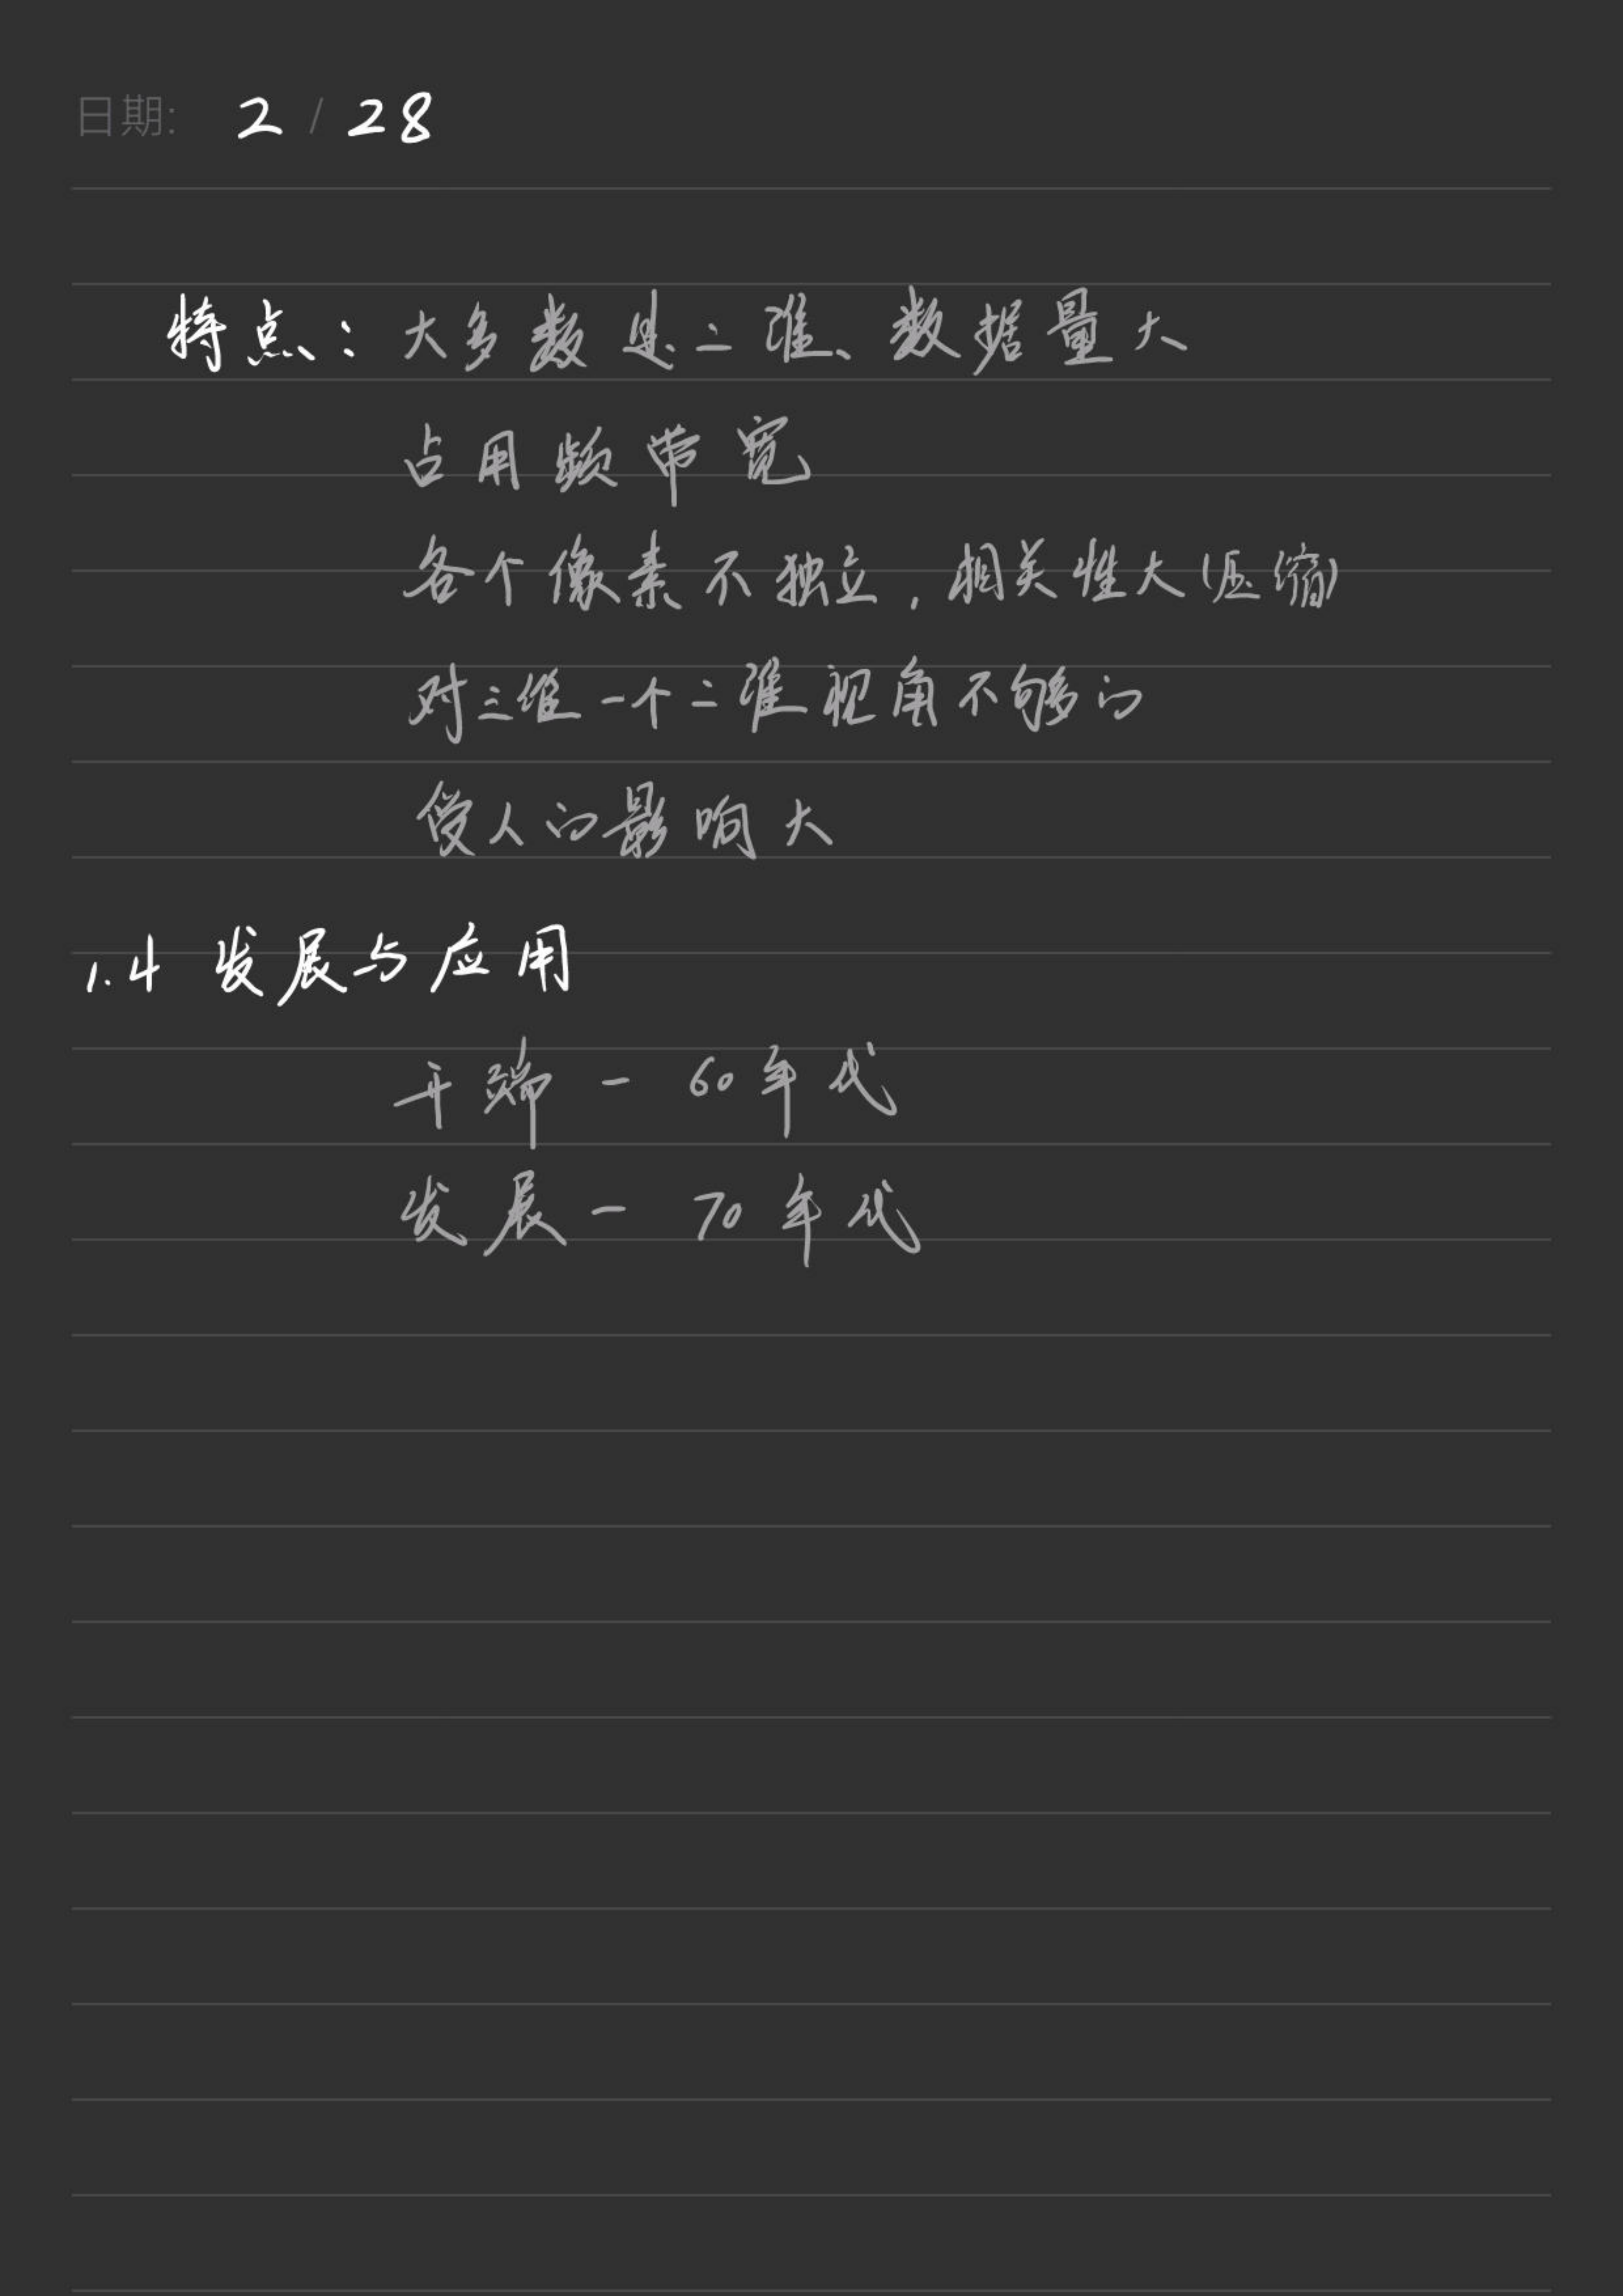 日期: 2 / 28
特点：大多数是二维、数据量大
占用频带宽
各个像素不独立，相关性大(压缩)
对三维一个二维视角不够的
受人的影响大
1.4 发展与应用
开端 - 60年代
发展 - 70年代